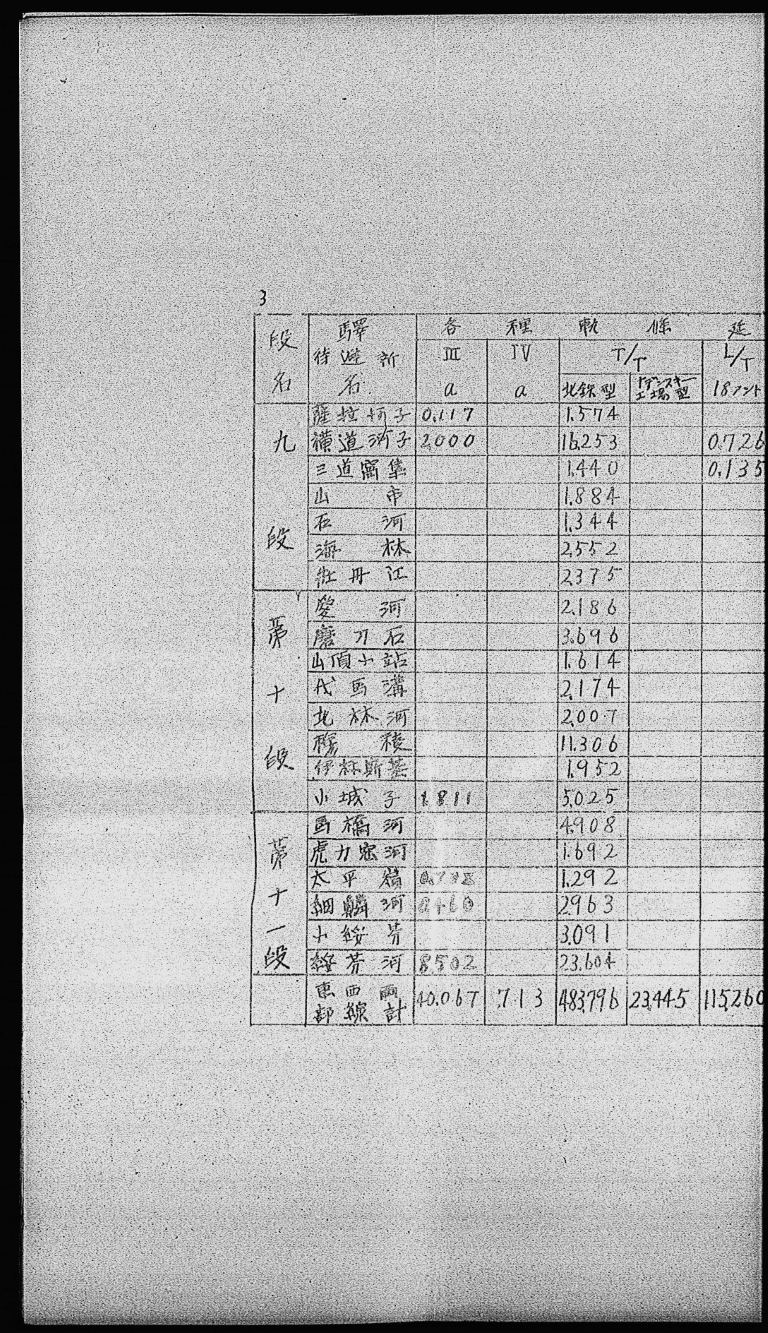 3
段名 驛 待避所名 各種軌條延
III a IV a T/T 北鉄型 工場型 L/T 18フント
九段
薩拉河子 0.117 1.574
横道河子 2.000 16.253 0.726
三道窩集 1.440 0.135
山市 1.884
石河 1.344
海林 2.552
牡丹江 2.375
第十段
愛河 2.186
磨刀石 3.696
山頂小站 1.614
代馬溝 2.174
北林河 2.007
穆稜 11.306
伊林斯基 1.952
小城子 1.811 5.025
第十一段
馬橋河 4.908
虎力密河 1.692
太平嶺 1.292
細鱗河 2.963
小綏芬 3.091
綏芬河 8.502 23.604
東西兩部線計 40.067 7.713 483.796 23.445 115.260